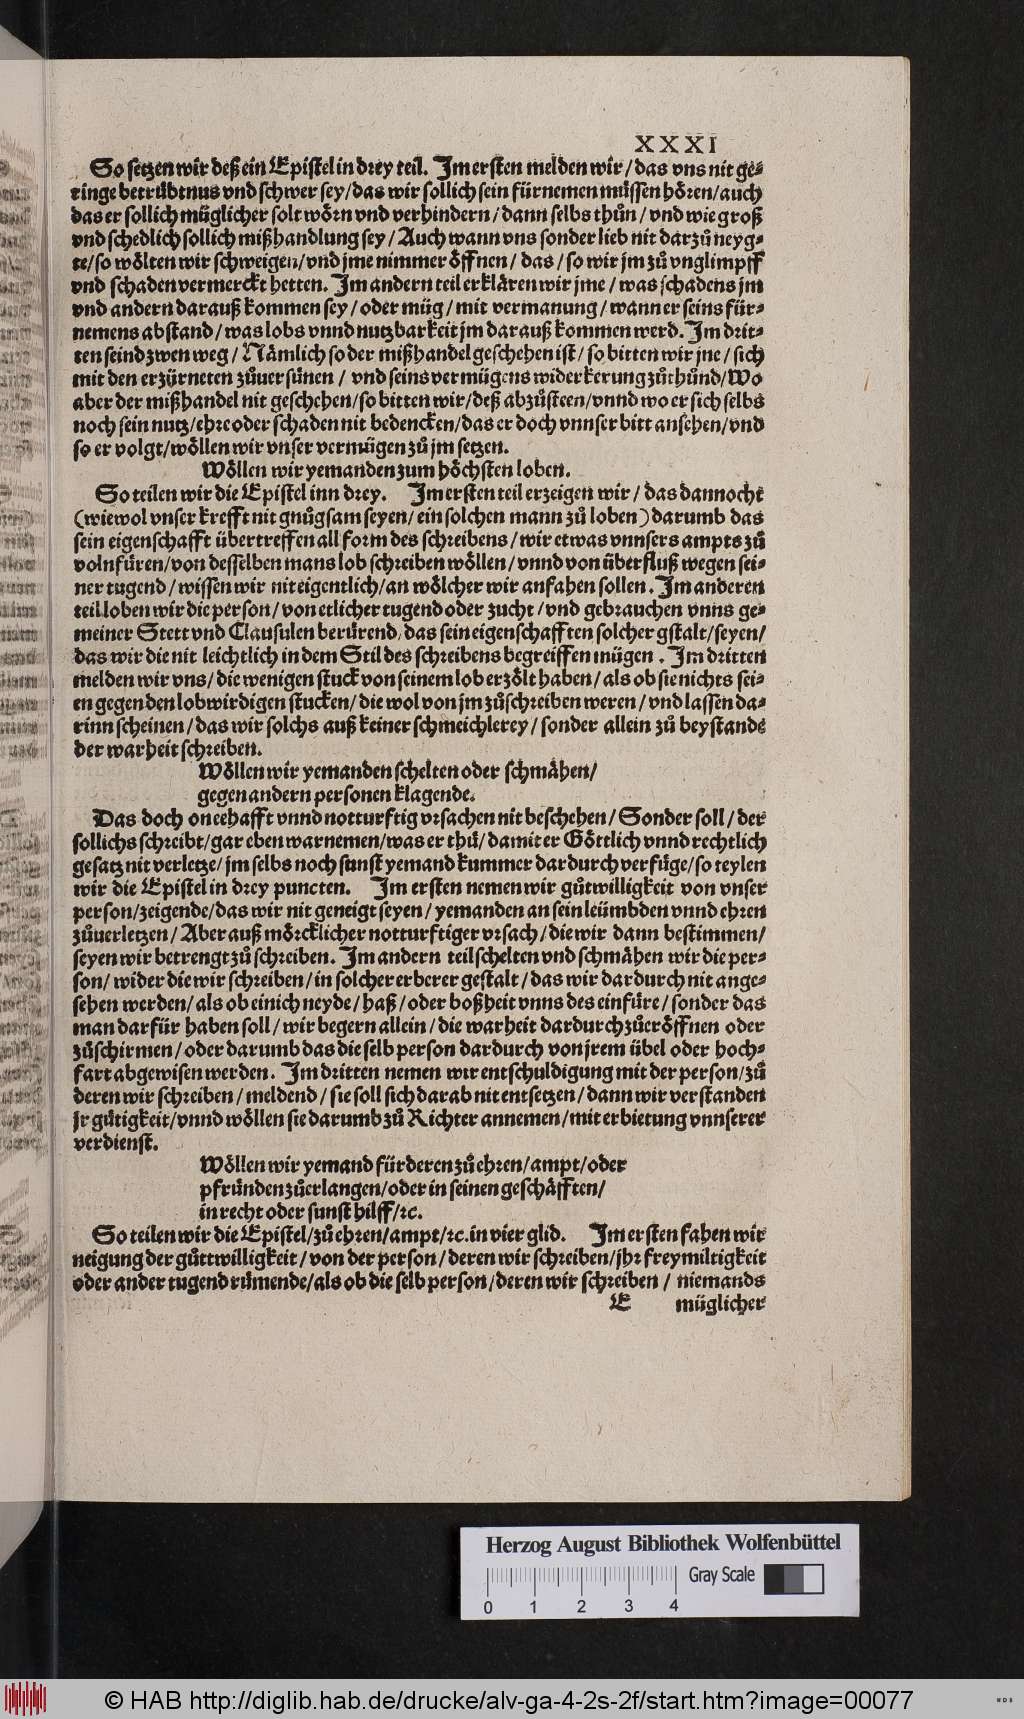 XXXI
So setzen wir deß ein Epistel in drey teil. Im ersten melden wir / das vns nit ge-
ringe betruͤbtnus vnd schwer sey / das wir sollich sein fürnemen müssen hoͤren / auch
das er sollich müglicher solt woͤrn vnd verhindern / dann selbs thuͦn / vnd wie groß
vnd schedlich sollich mißhandlung sey / Auch wann vns sonder lieb nit darzuͦ neyg-
te / so woͤlten wir schweigen / vnd jme nimmer oͤffnen / das / so wir jm zuͦ vnglimpff
vnd schaden vermerckt hetten. Im andern teil erklaͤren wir jme / was schadens jm
vnd andern darauß kommen sey / oder müg / mit vermanung / wann er seins für-
nemens abstand / was lobs vnnd nutzbarkeit jm darauß kommen werd. Im drit-
ten seind zwen weg / Naͤmlich so der mißhandel geschehen ist / so bitten wir jne / sich
mit den erzürneten zuͦuersuͤnen / vnd seins vermügens widerkerung zuͦthuͦnd / Wo
aber der mißhandel nit geschehen / so bitten wir / deß abzuͦsteen / vnnd wo er sich selbs
noch sein nutz / ehre oder schaden nit bedencken / das er doch vnnser bitt ansehen / vnd
so er volgt / woͤllen wir vnser vermügen zuͦ jm setzen.
Woͤllen wir yemanden zum hoͤchsten loben.
So teilen wir die Epistel inn drey. Im ersten teil erzeigen wir / das dannocht
(wiewol vnser krefft nit gnuͦgsam seyen / ein solchen mann zuͦ loben) darumb das
sein eigenschafft übertreffen all form des schreibens / wir etwas vnnsers ampts zuͦ
volnfüren / von desselben mans lob schreiben woͤllen / vnnd von überfluß wegen sei-
ner tugend / wissen wir nit eigentlich / an woͤlcher wir anfahen sollen. Im anderen
teil loben wir die person / von etlicher tugend oder zucht / vnd gebrauchen vnns ge-
meiner Stett vnd Clausulen berürend / das sein eigenschafften solcher gstalt / seyen /
das wir die nit leichtlich in dem Stil des schreibens begreiffen mügen. Im dritten
melden wir vns / die wenigen stuck von seinem lob erzoͤlt haben / als ob sie nichts sei-
en gegen den lobwirdigen stucken / die wol von jm zuͦschreiben weren / vnd lassen da-
rinn scheinen / das wir solchs auß keiner schmeichlerey / sonder allein zuͦ beystande
der warheit schreiben.
Woͤllen wir yemanden schelten oder schmaͤhen /
gegen andern personen klagende.
Das doch on eehafft vnnd notturftig vrsachen nit beschehen / Sonder soll / der
sollichs schreibt / gar eben warnemen / was er thuͦ / damit er Goͤttlich vnnd rechtlich
gesatz nit verletze / jm selbs noch sunst yemand kummer dardurch verfüge / so teylen
wir die Epistel in drey puncten. Im ersten nemen wir guͦtwilligkeit von vnser
person / zeigende / das wir nit geneigt seyen / yemanden an sein leümbden vnnd ehren
zuͦuerletzen / Aber auß moͤrcklicher notturftiger vrsach / die wir dann bestimmen /
seyen wir betrengt zuͦ schreiben. Im andern teil schelten vnd schmaͤhen wir die per-
son / wider die wir schreiben / in solcher erberer gestalt / das wir dardurch nit ange-
sehen werden / als ob einich neyde / haß / oder boßheit vnns des einfüre / sonder das
man darfür haben soll / wir begern allein / die warheit dardurch zuͦeroͤffnen oder
zuͦschirmen / oder darumb das die selb person dardurch von jrem übel oder hoch-
fart abgewisen werden. Im dritten nemen wir entschuldigung mit der person / zuͦ
deren wir schreiben / meldend / sie soll sich darab nit entsetzen / dann wir verstanden
jr guͤtigkeit / vnnd woͤllen sie darumb zuͦ Richter annemen / mit erbietung vnnserer
verdienst.
Woͤllen wir yemand fürderen zuͦ ehren / ampt / oder
pfründen zuͦerlangen / oder in seinen geschaͤfften /
in recht oder sunst hilff / ꝛc.
So teilen wir die Epistel / zuͦ ehren / ampt / ꝛc. in vier glid. Im ersten fahen wir
neigung der guͦttwilligkeit / von der person / deren wir schreiben / jhr freymiltigkeit
oder ander tugend ruͤmende / als ob die selb person / deren wir schreiben / niemands
E müglicher
Herzog August Bibliothek Wolfenbüttel
Gray Scale
0 1 2 3 4
© HAB http://diglib.hab.de/drucke/alv-ga-4-2s-2f/start.htm?image=00077